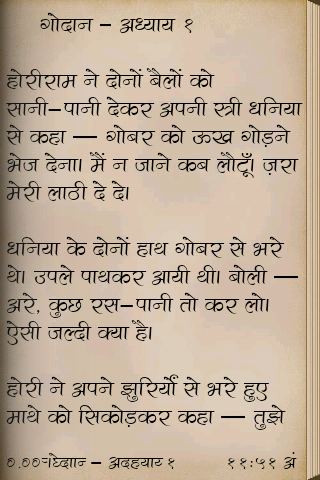 गोदान – अध्याय १
होरीराम ने दोनों बैलों को
सानी–पानी देकर अपनी स्त्री धनिया
से कहा — गोबर को ऊख गोड़ने
भेज देना। मैं न जाने कब लौटूँ। ज़रा
मेरी लाठी दे दे।
धनिया के दोनों हाथ गोबर से भरे
थे। उपले पाथकर आयी थी। बोली —
अरे, कुछ रस–पानी तो कर लो।
ऐसी जल्दी क्या है।
होरी ने अपने झुरिर्यों से भरे हुए
माथे को सिकोड़कर कहा — तुझे
– अदहयाय १ ११:५१ अं